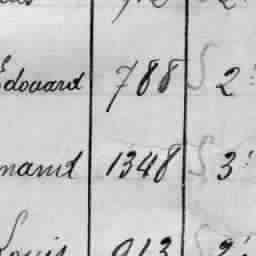 Edouard 788 2
mand 1348 3
Louis 913 2